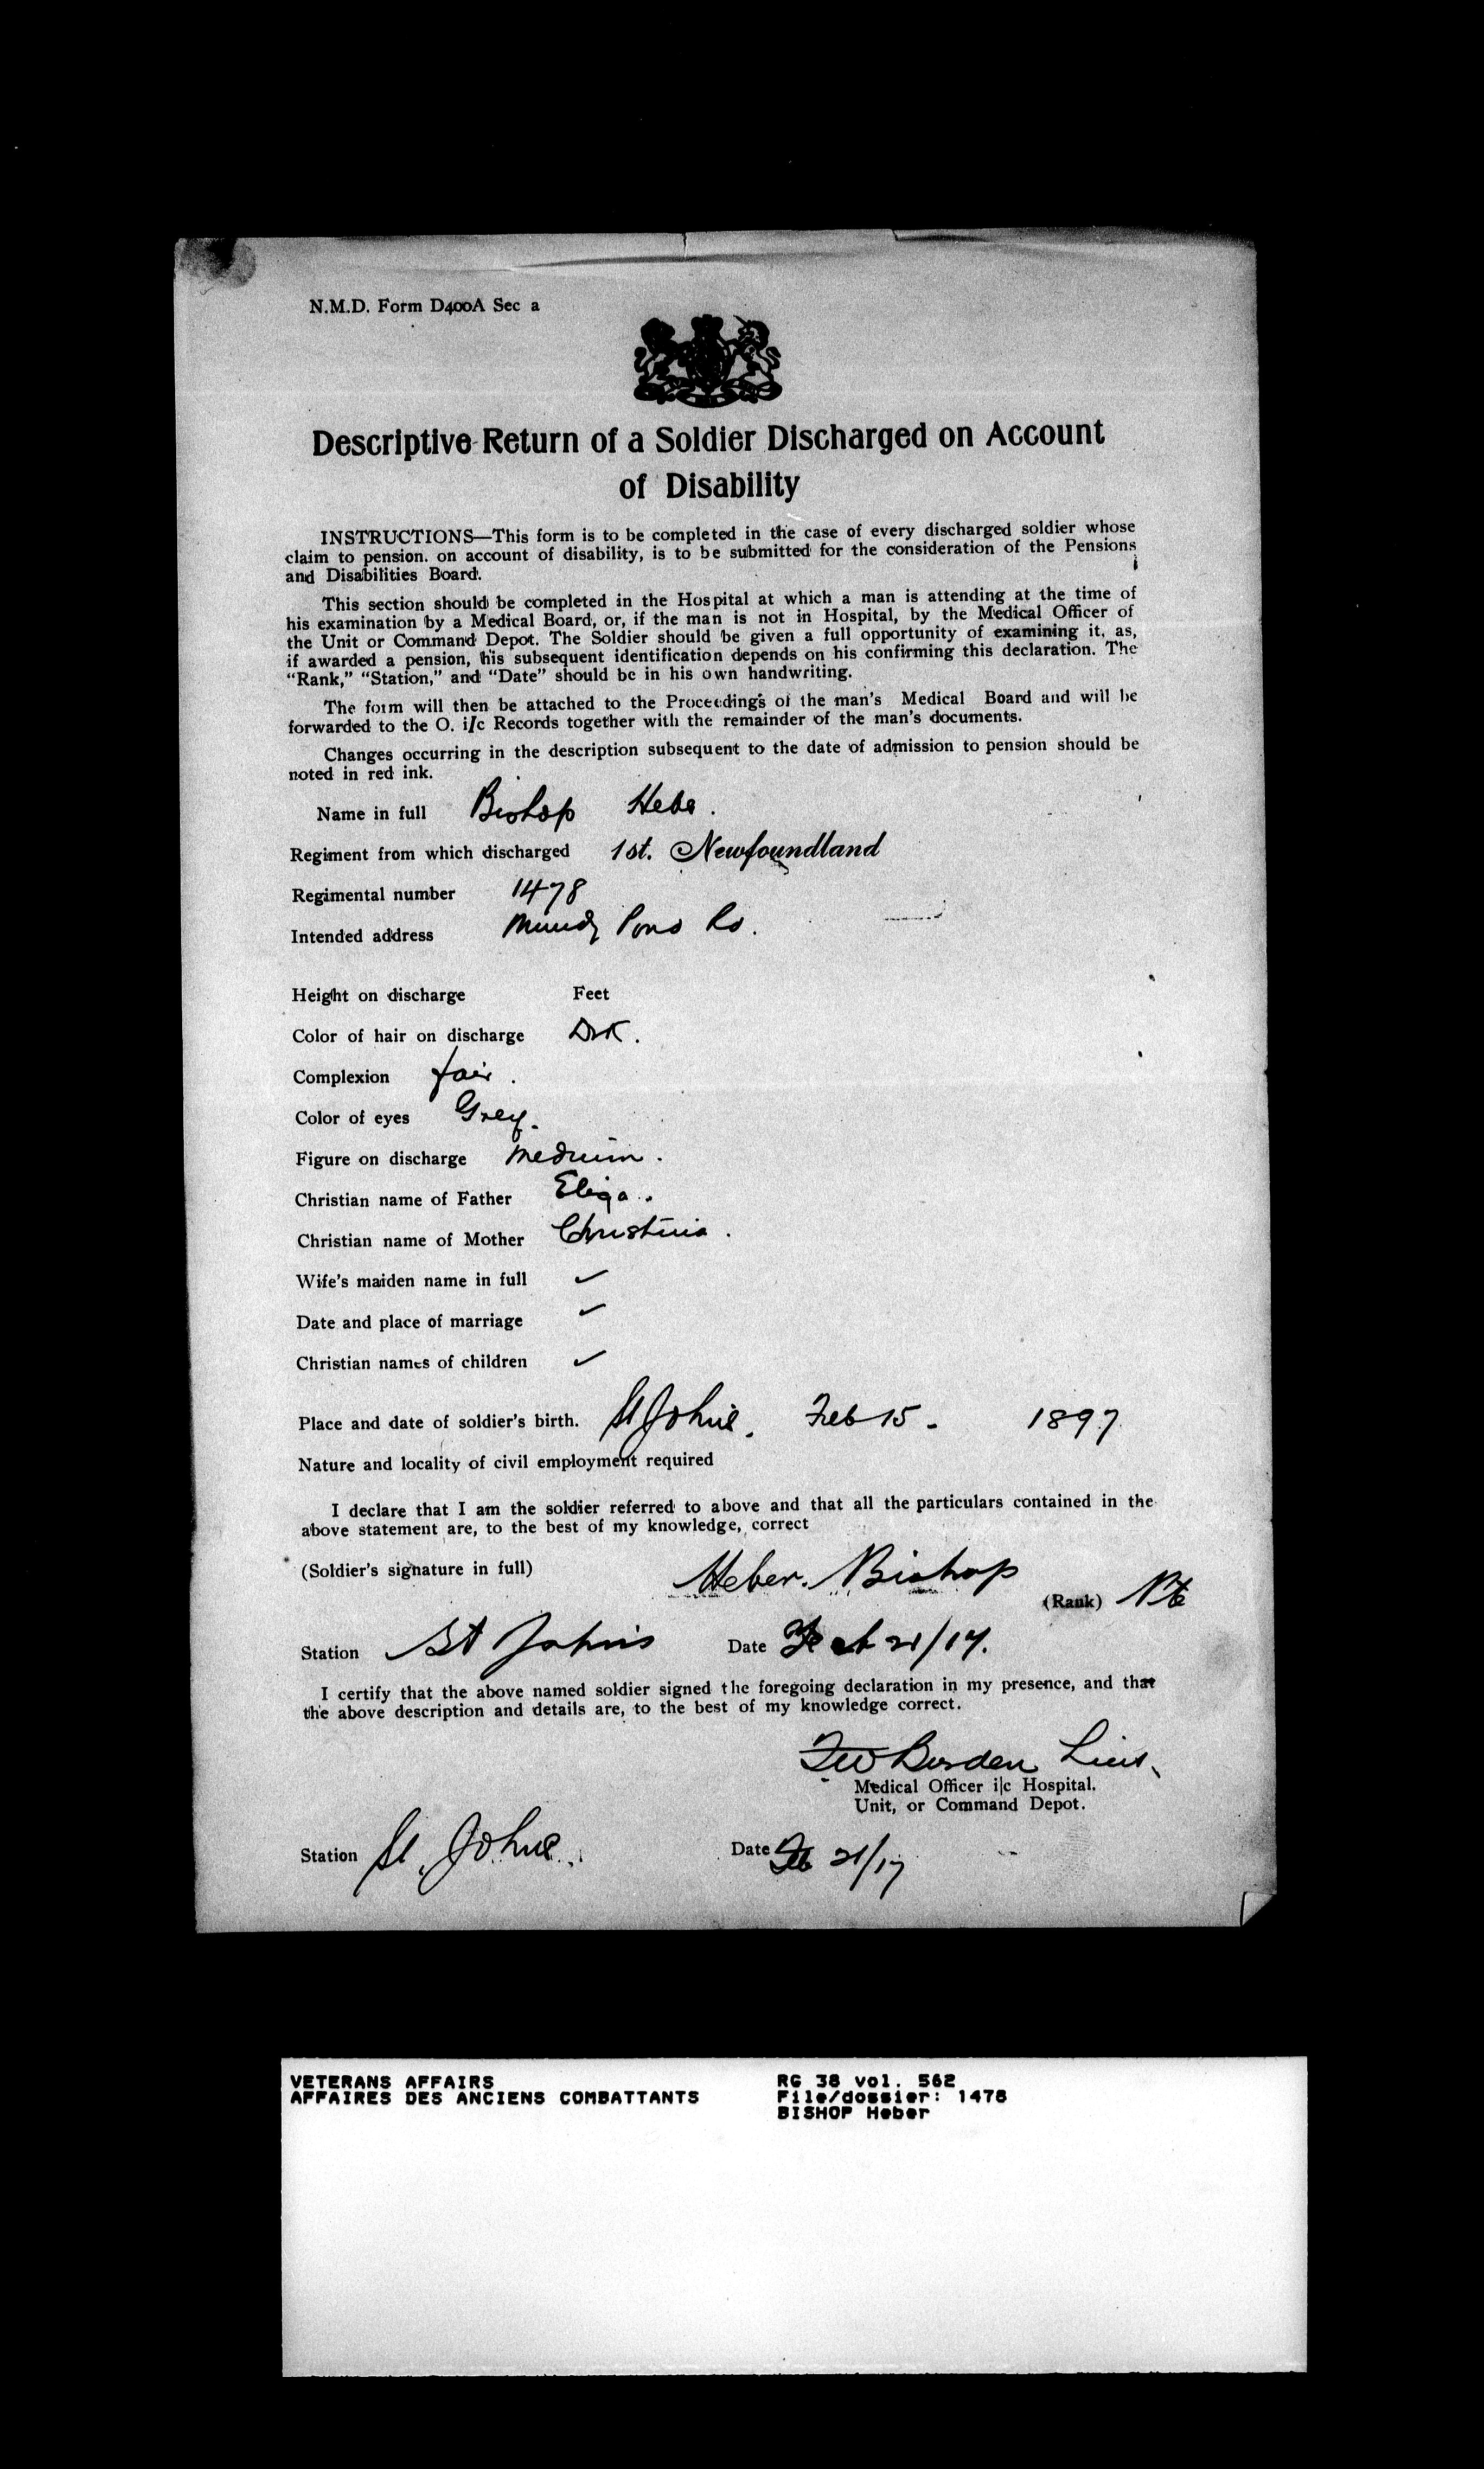 N.M.D. Form D400A Sec a
Descriptive Return of a Soldier Discharged on Account
of Disability
INSTRUCTIONS—This form is to be completed in the case of every discharged soldier whose
claim to pension. on account of disability, is to be submitted for the consideration of the Pensions
and Disabilities Board.
This section should be completed in the Hospital at which a man is attending at the time of
his examination by a Medical Board, or, if the man is not in Hospital, by the Medical Officer of
the Unit or Command Depot. The Soldier should be given a full opportunity of examining it, as,
if awarded a pension, his subsequent identification depends on his confirming this declaration. The
"Rank," "Station," and "Date" should be in his own handwriting.
The form will then be attached to the Proceedings of the man's Medical Board and will be
forwarded to the O. i/c Records together with the remainder of the man's documents.
Changes occurring in the description subsequent to the date of admission to pension should be
noted in red ink.
Name in full Bishop Heber.
Regiment from which discharged 1st. Newfoundland
Regimental number 1478
Intended address Mundy Pond Rd.
Height on discharge Feet
Color of hair on discharge Drk.
Complexion fair.
Color of eyes Grey.
Figure on discharge Medium.
Christian name of Father Eliga.
Christian name of Mother Christina.
Wife's maiden name in full ✓
Date and place of marriage ✓
Christian names of children ✓
Place and date of soldier's birth. St Johns. Feb 15 - 1897
Nature and locality of civil employment required
I declare that I am the soldier referred to above and that all the particulars contained in the
above statement are, to the best of my knowledge, correct
(Soldier's signature in full) Heber. Bishop
(Rank) Pte
Station St Johns Date Feb 21/17.
I certify that the above named soldier signed the foregoing declaration in my presence, and that
the above description and details are, to the best of my knowledge correct.
Burden Lieut.
Medical Officer i|c Hospital.
Unit, or Command Depot.
Station St. Johns. Date Feb 21/17
VETERANS AFFAIRS RG 38 vol. 562
AFFAIRES DES ANCIENS COMBATTANTS File/dossier: 1478
BISHOP Heber